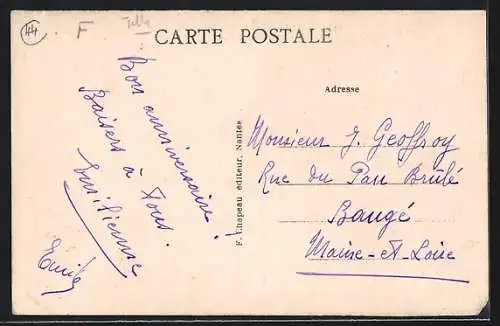 44
F
CARTE POSTALE
Bon anniversaire!
Baisers à Tous.
Adresse
F. Chapeau éditeur, Nantes
Monsieur J. Geoffroy
Rue du Pan Brûlé
Baugé
Maine-et-Loire